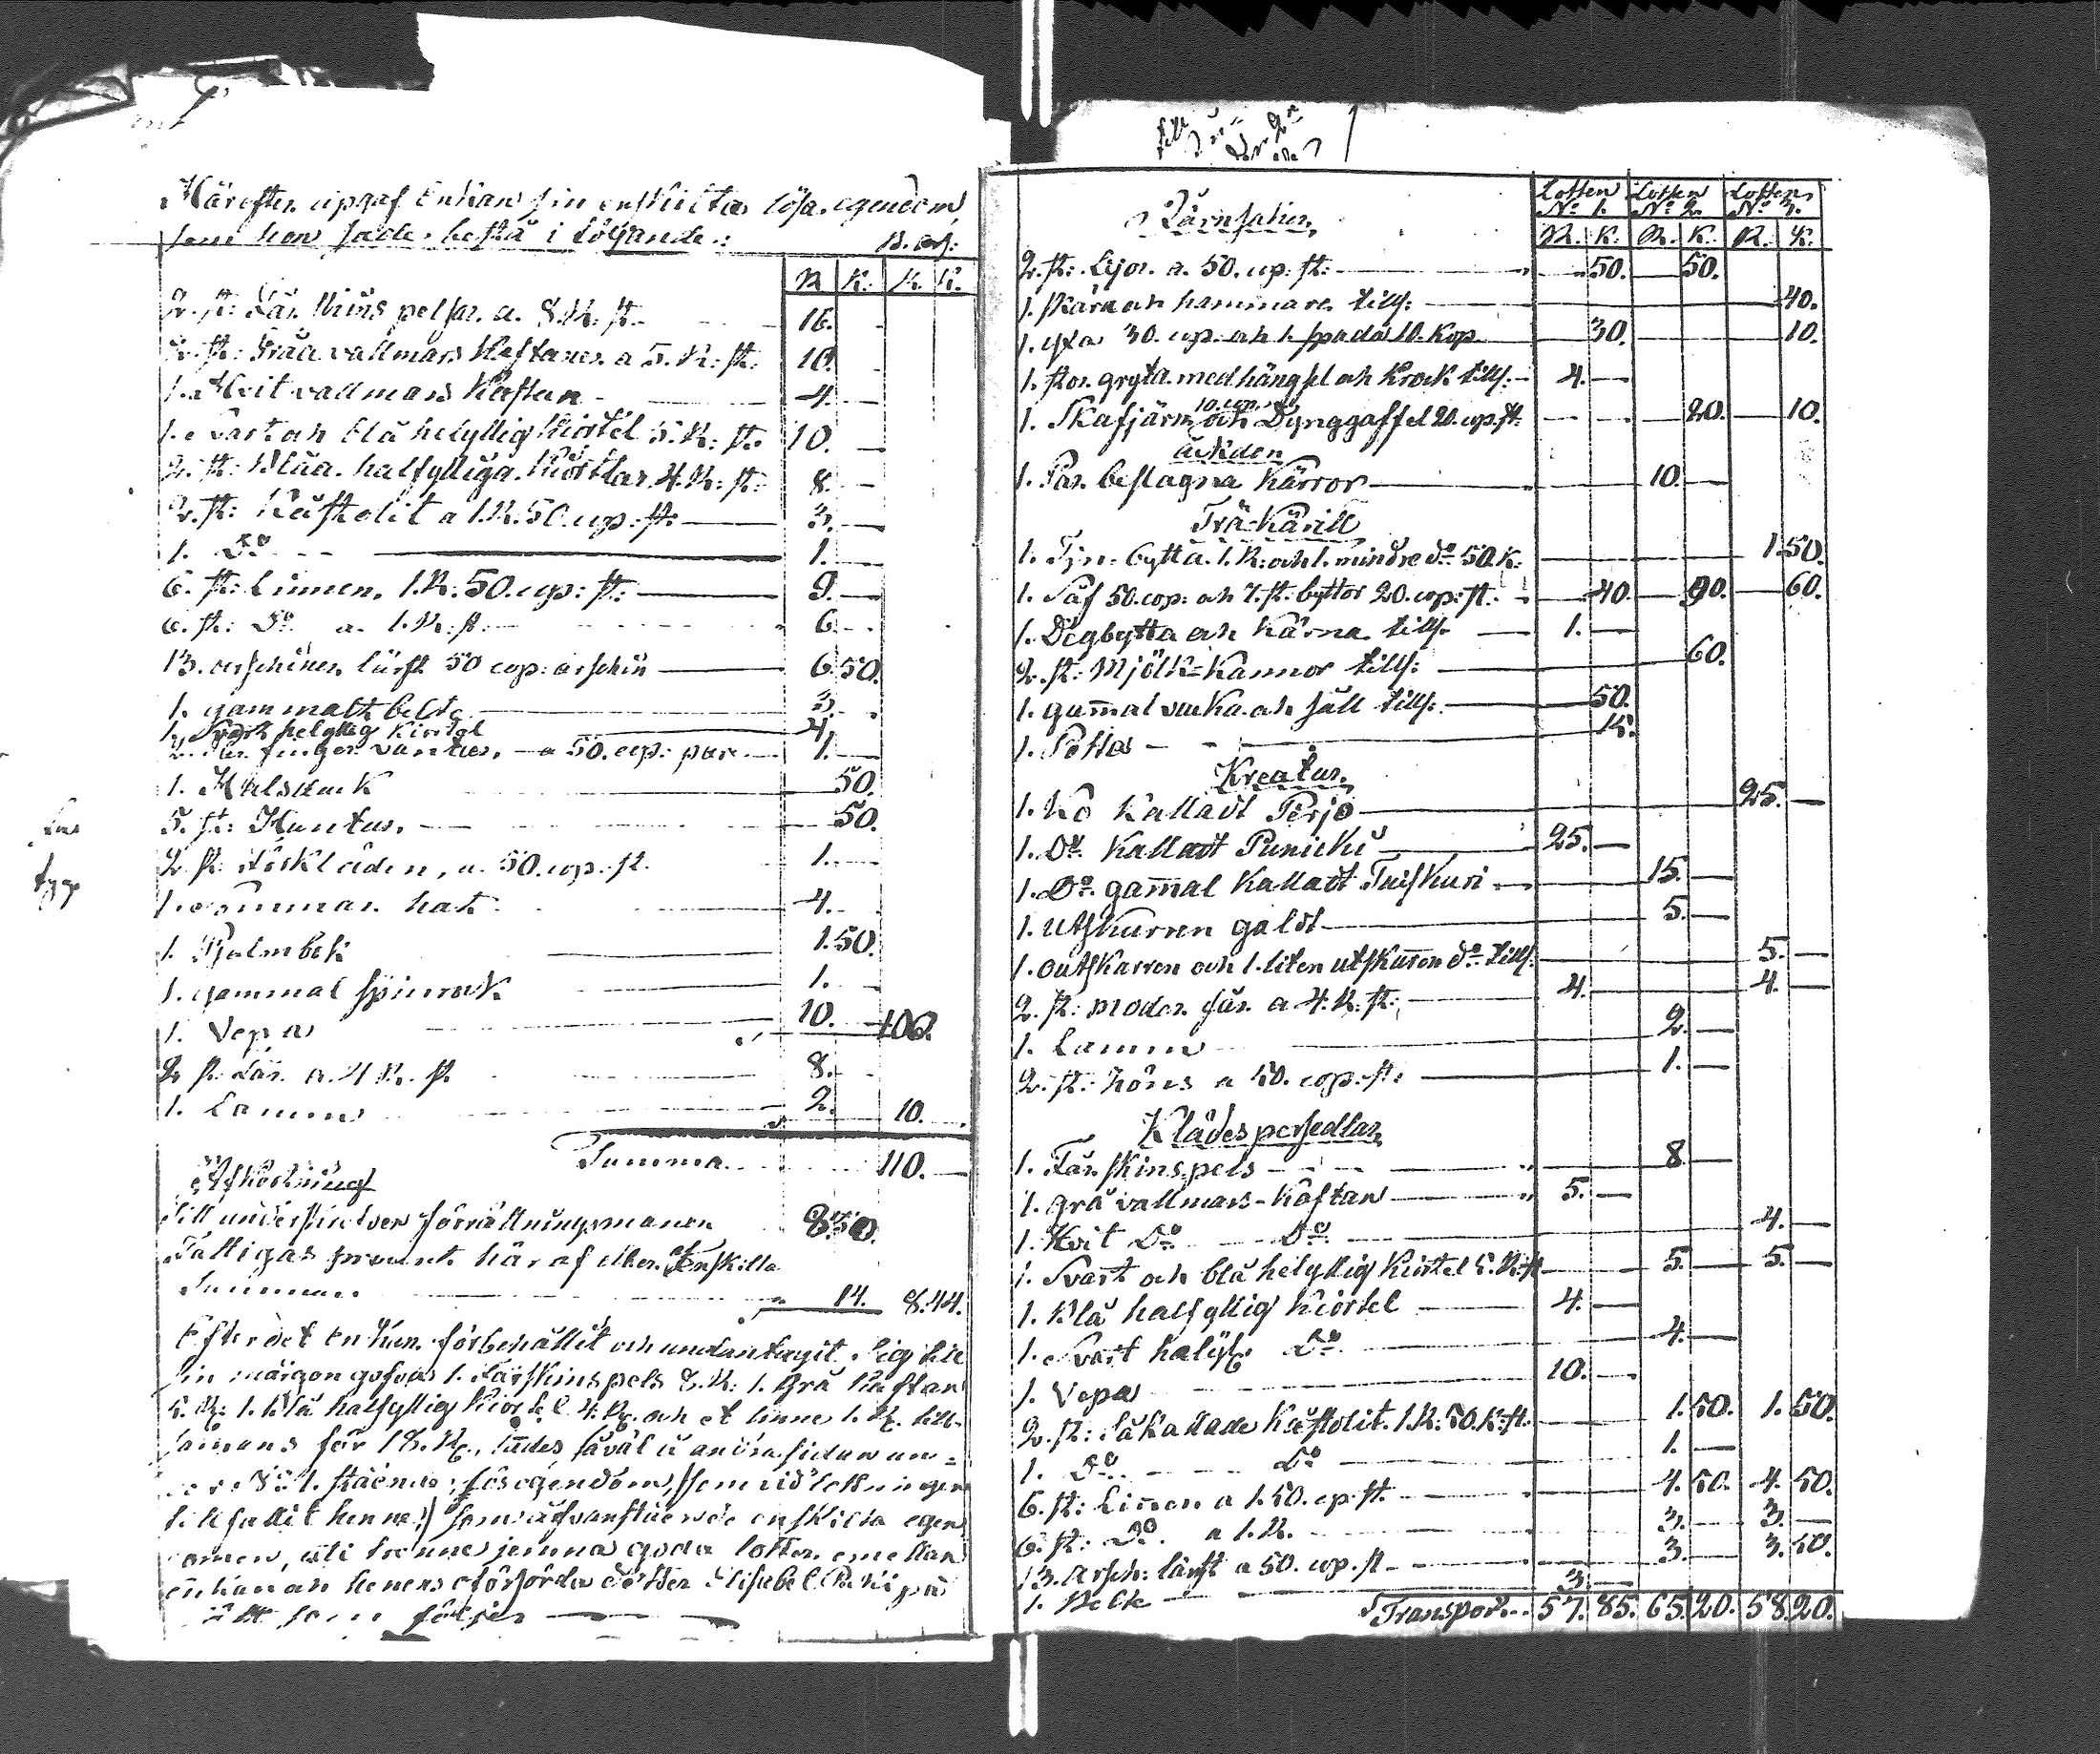 Härefter upgaf Enkan sin enskilta lösa egendom,
som hon sade bestå i följande:
R. K. R. K.
2. st: Får skins pelsar a. 8. R: st. 16.
2. st: Gråa vallmars Kaftaner a 5. R: st. 10.
1. Hvit vallmars Kaftan 4.
1. Svart och blå helyllig Kiortel 5. R: st. 10.
2. st: Blåa halfylliga Kiortlar 4. R: st: 8.
2. st: Käistolit a 1. R. 50. cop: st: 3.
1. Do 1.
6. st: Linnen, 1. R: 50. cop: st: 9.
6. st: Do a 1. R: st: 6.
13. arschiner lärft 50 cop: arschin 6. 50.
1. gammalt belte 3.
1. Svart helyllig Kiortel 4.
2. Par finger vantar, a 50. cop: par 1.
1. Halsduk 50.
5. st: Huntus. 50.
2 st: förkläden, a 50. cop. st. 1.
1. Sommar hatt 4.
1. Psalmbok 1. 50.
1. gammal spinrock 1.
1. Vepa 10. 100.
2 st. Får a. 4 R. st. 8.
1. Lamm 2. 10.
Summa 110.
Afkortning
Till underskrefven förrättningsmannen 8. 30.
Fattigas procent här af eller Enskilta
Summan 14. 8. 44.
Efter det Enkan förbehållit och undantagit Sig till
sin märgongofva 1. Fårskinspels 8. R: 1. Grå Kaftan
5. R: 1. Blå halfyllig Kiortel 4. R. och et linne 1. R. till-
samans för 18. R., lades såväl å andra sidan un-
No 1. stående lösegendom, som vid lottningen
tillfallit henne, som äfvanstående enskilta egen
domen, uti trenne jemna goda lotter emellan
enkan och henens döttrar Elisabet på
sätt som följer
Lotten No 1. Lotten No 2. Lotten No 3.
Järnsaker R. K. R. K. R. K.
2. st: Lijor a. 50. cop: st: 50. 50.
1. skära och hammare tills: 40.
1. yxa 30. cop: och 1. spada 10. Kop 30. 10.
1. stor gryta med hängsel och Krock tills: 4.
1. Skafjärn 10. cop. och Dynggaffel 20. cop. st: 20. 10.
åkden
1. Par beslagna Kärror 10.
Trä-Kärill
1. Tjn-bytta 1. R: och 1. mindre do 50. K: 1. 50.
1. Såf 50. cop: och 7. st: byttor 20. cop: st: 40. 90. 60.
1. Degbytta och Kärna tills: 1.
2. st: Mjölk-Kannor tills: 60.
1. gammal vacka och såll tills: 50.
1. Potta 15.
Kreatur
1. Ko Kallad Perjo 25.
1. Do Kallad Punicki 25.
1. Do gammal Kallad Tuiskuri 15.
1. Utskurren galdt 5.
1. outskurren och 1. liten utskurren do tills: 5.
2. st: moder får a 4. R. st: 4. 4.
1. Lamm 2.
2. st: höns a 50. cop. st: 1.
Klädespersedlar
1. Får skinspels 8
1. grå vallmars-Kaftan 5.
1. Hvit Do Do 4.
1. Svart och blå helyllig Kiortel 5. R: st 5. 5.
1. Blå halfyllig Kiortel 4.
1. Svart halfyl. Do 4.
1. Vepa 10.
2. st: så Kallade Käistolit 1. R: 50. K: st. 1. 50. 1. 50.
1. Do Do 1.
6. st: Linnen a 1. 50. cop. st. 4. 50. 4. 50.
6. st: Do a 1. R. 3. 3.
13. Arsch: lärft a 50. cop. st 3. 3. 50.
1. Belte 3.
Transport 57. 85. 65. 20. 58. 20.